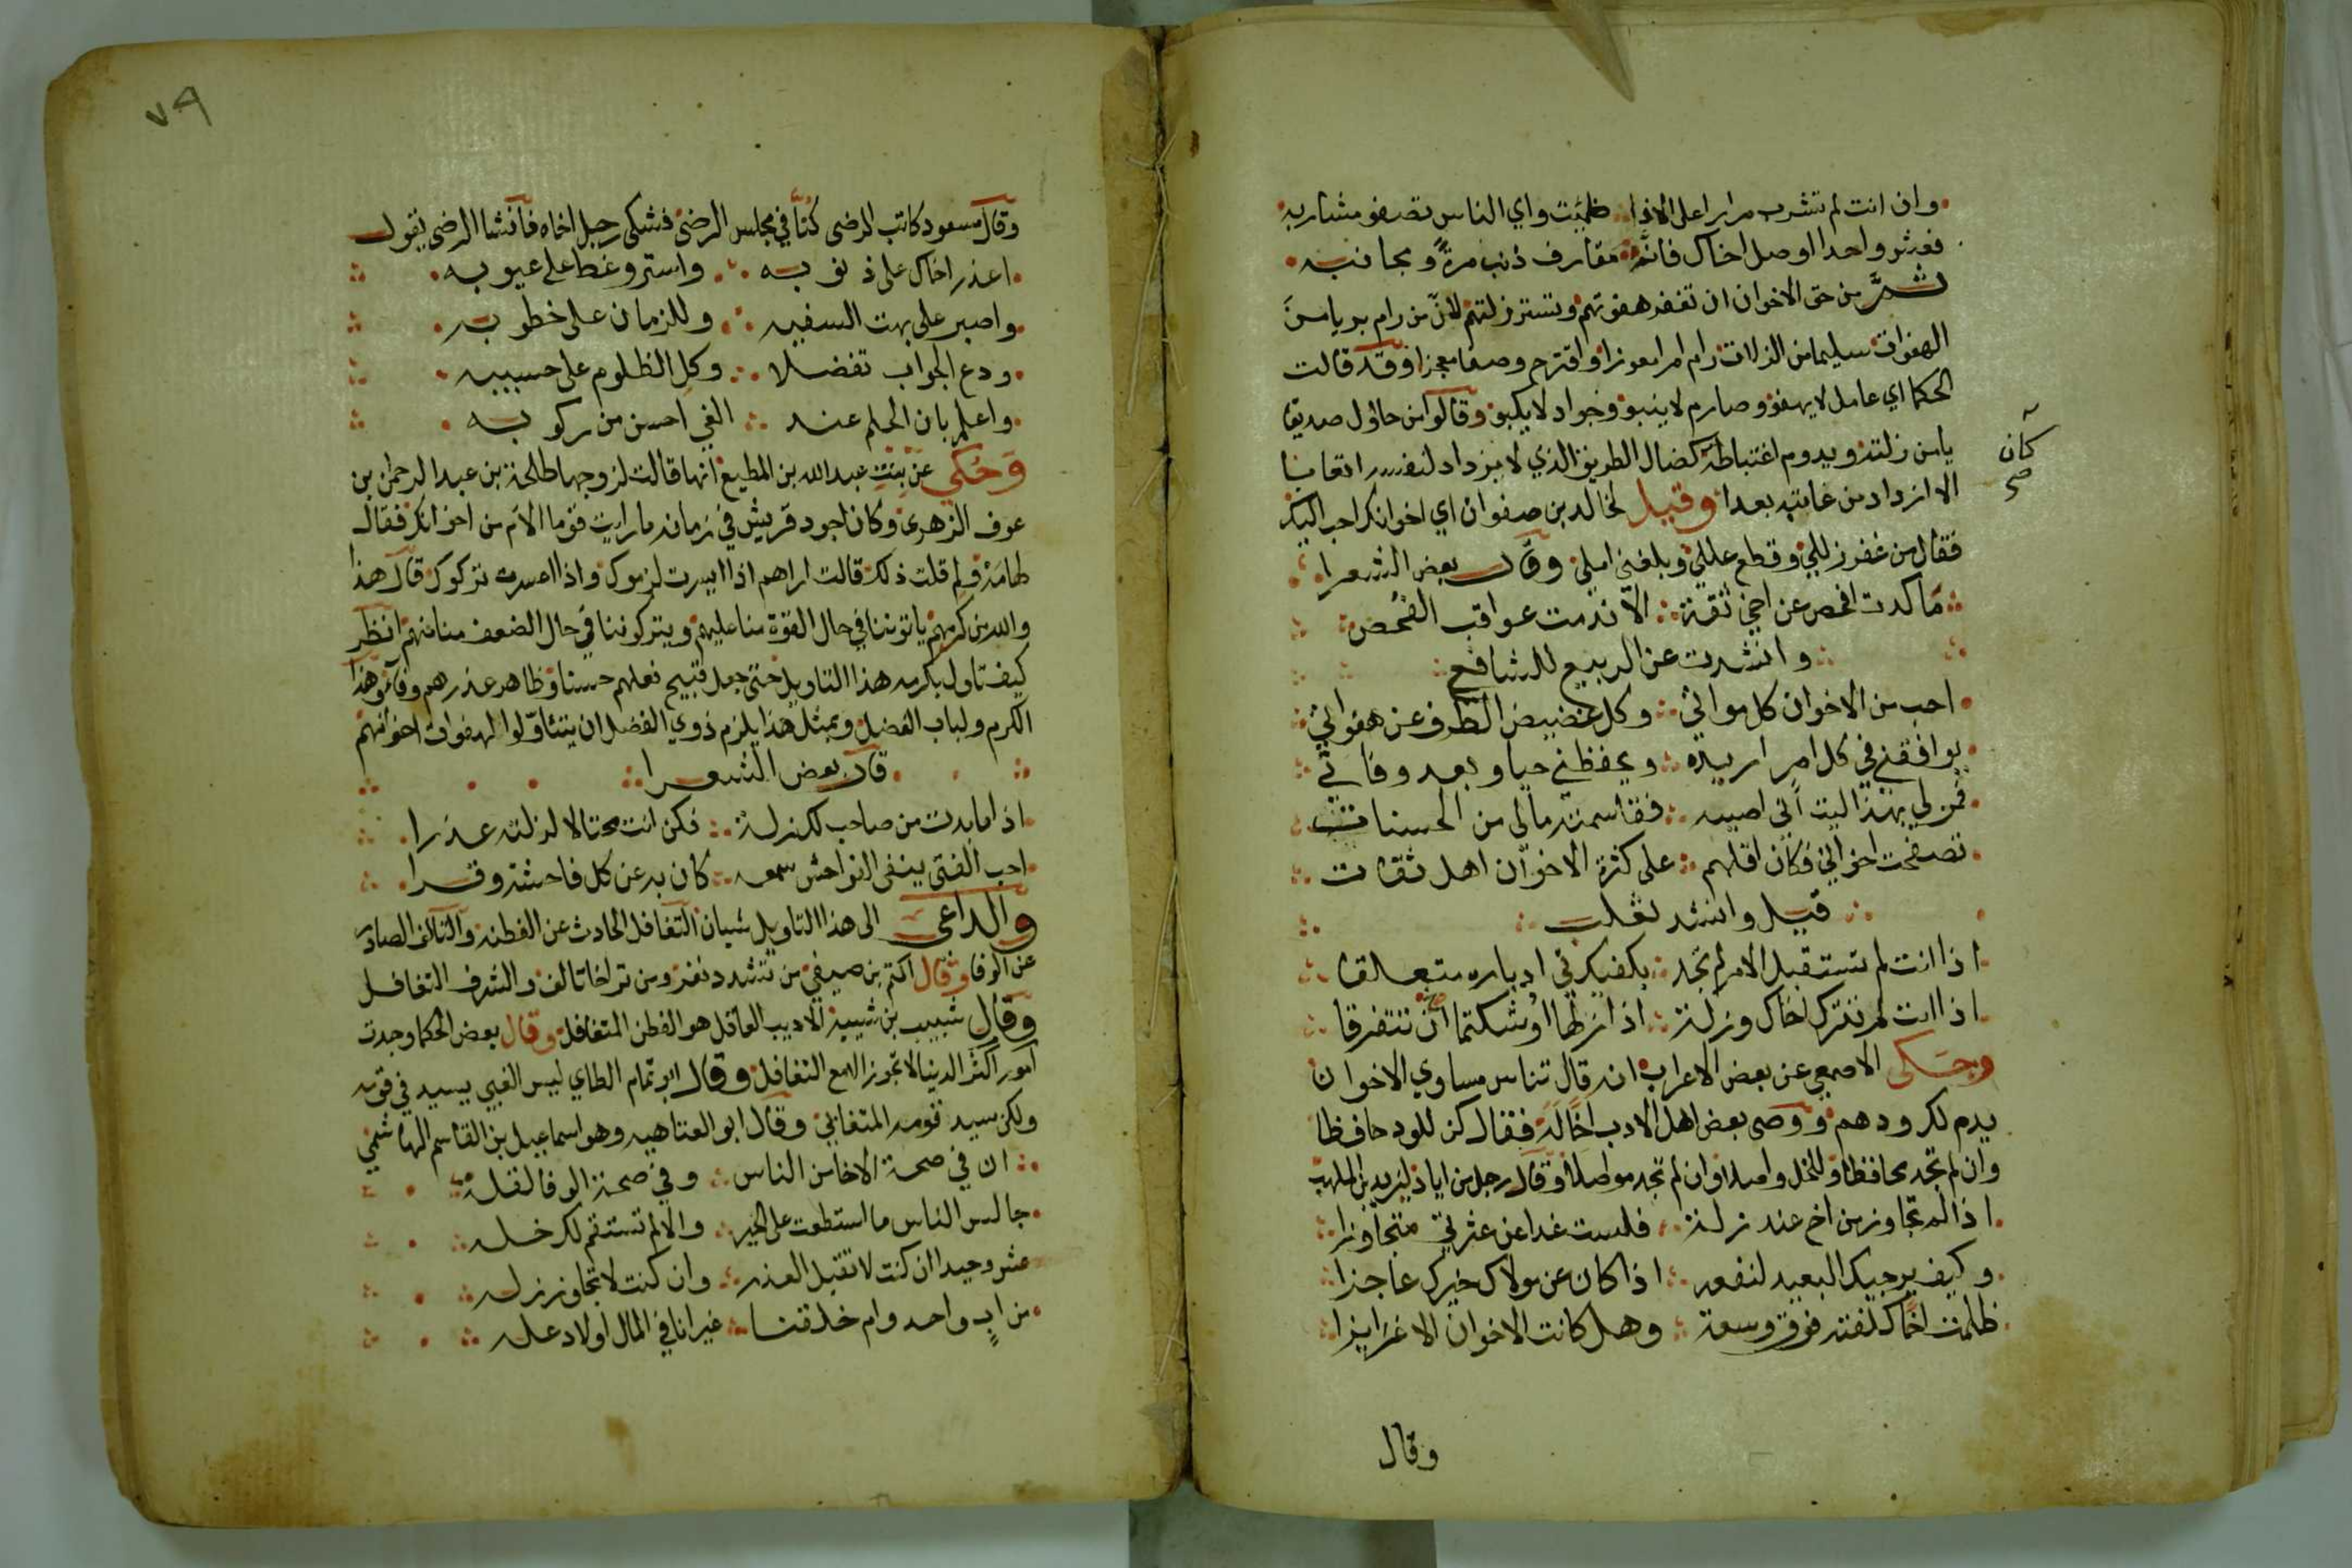 وان انت لم تشرب مرارا على الاذا ظمئت واي الناس تصفو مشاربه
فعش واحدا اوصل اخاك فانه مقارف ذنب مرة ومجانبه
ثم من حق الاخوان ان تغفر هفوتهم وتستر زلتهم لان من رام بريا من
الهفوات سليما من الزلات رام امرا معوزا واقترح وصفا معجزا وقد قالت
الحكما اي عامل لا يهفو وصارم لا ينبو وجواد لا يكبو وقالوا من حاول صديقا
يامن زلته ويدوم اغتباطه كضال الطريق الذي لا يزداد لنفسه اتعابا
كان
صح
الا ازداد من غايته بعدا وقيل لخالد بن صفوان اي اخوانك احب اليك
فقال من غفر زللي وقطع عللي وبلغني املي وقال بعض الشعرا
ما كدت افحص عن اخي ثقة الا ندمت عواقب الفحص
وانشدت عن الربيع للشافعي
احب من الاخوان كل مواتي وكل غضيض الطرف عن هفواتي
يوافقني في كل امر اريده ويحفظني حيا وبعد وفاتي
فمن لي بهذا ليت اني اصيبه فقاسمته مالي من الحسنات
تصفحت اخواني فكان اقلهم على كثرة الاخوان اهل ثقات
قيل وانشد ثعلب
اذا انت لم تستقبل الامر لم تجد بكفيك في ادباره متعلقا
اذا انت لم تترك اخاك وزلة اذا زلها اوشكتما ان تتفرقا
وحكى الاصمعي عن بعض الاعراب انه قال تناس مساوي الاخوان
يدم لك ودهم ووصى بعض اهل الادب اخا له فقال كن للود حافظا
وان لم تجد محافظا وللخل واصلا وان لم تجد مواصلا وقال رجل من اياد ليزيد بن المهلب
اذا لم تجاوز من اخ عند زلة فلست غدا عن عثرتي متجاوزا
وكيف يرجيك البعيد لنفعه اذا كان عن مولاك خيرك عاجزا
ظلمت اخا كلفته فوق وسعه وهل كانت الاخوان الا غرايزا
وقال
٧٩
وقال مسعود كاتب الرضى كنا في مجلس الرضى فشكى رجل اخاه فانشا الرضى يقول
اعذر اخاك على ذنوبه واستر وغط على عيوبه
واصبر على بهت السفيه وللزمان على خطوبه
ودع الجواب تفضلا وكل الظلوم على حسيبه
واعلم بان الحلم عند الغي احسن من ركوبه
وحكي عن بنت عبد الله بن المطيع انها قالت لزوجها طلحة بن عبد الرحمن بن
عوف الزهري وكان اجود قريش في زمانه ما رايت قوما الام من اخوانك فقال
لها مه ولم قلت ذلك قالت اراهم اذا ايسرت لزموك واذا اعسرت تركوك قال هذا
والله من كرمهم ياتوننا في حال القوة منا عليهم ويتركوننا في حال الضعف منا منهم انظر
كيف تاول بكرمه هذا التاويل حتى جعل قبيح فعلهم حسنا وظاهر عذرهم وفاء وهذا
الكرم ولباب الفضل وبمثل هذا يلزم ذوي الفضل ان يتناولوا لهفوات اخوانهم
قال بعض الشعرا
اذا ما بدت من صاحب لك زلة فكن انت محتالا لزلته عذرا
احب الفتى ينفي الفواحش سمعه كان به عن كل فاحشة وقرا
والداعي الى هذا التاويل شيان التغافل الحادث عن الفطنه والتالف الصادر
عن الوفا وقال اكتم بن صيفي من تشدد نفر ومن تراخا تالف والشرف التغافل
وقال شبيب بن شيبة الاديب العاقل هو الفطن المتغافل وقال بعض الحكما وجدت
امور اكثر الدنيا لا تجوز الا مع التغافل وقال ابو تمام الطاي ليس الغبي بسيد في قومه
ولكن سيد قومه المتغابي وقال ابو العتاهيه وهو اسماعيل بن القاسم الهاشمي
ان في صحة الاخا من الناس وفي صحة الوفا لقلة
جالس الناس ما استطعت على الخير والا لم تستقم لك خله
عش وحيدا ان كنت لا تقبل العذر وان كنت لا تجاوز زله
من اب واحد وام خلقنا غير انا في المال اولاد عله